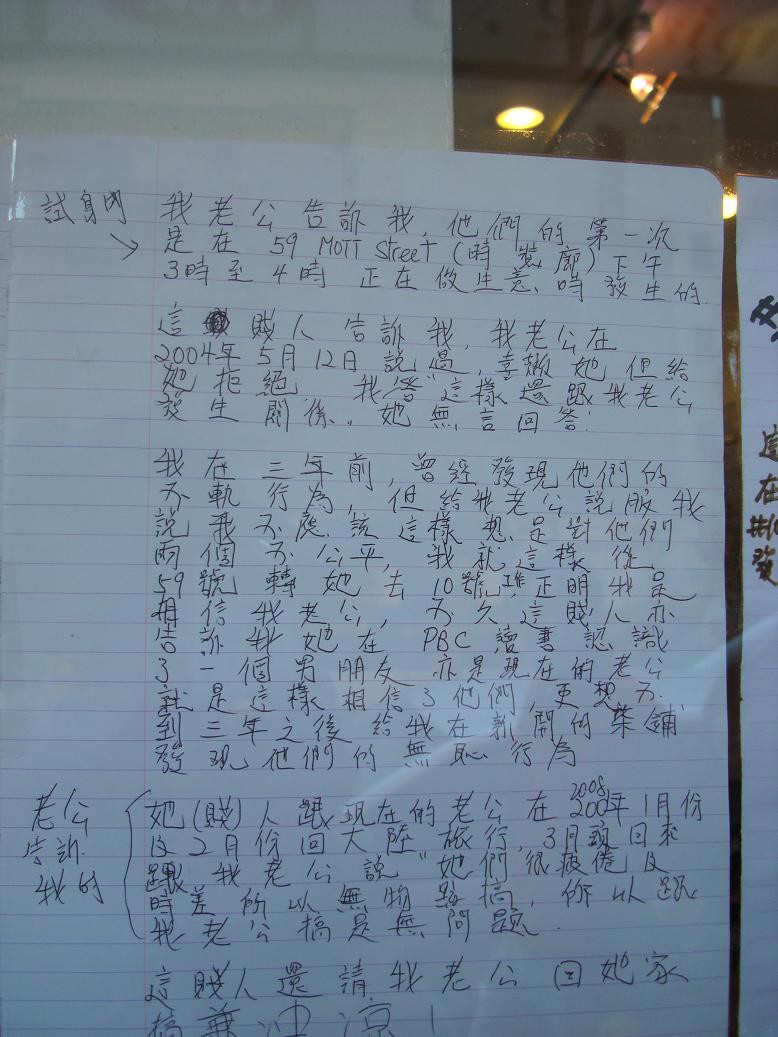 試身內 我老公告訴我,他們的第一次
→ 是在 59 MOTT Street (時裝廊) 下午
3時至4時 正在做生意時發生的.
這賤人告訴我,我老公在
2004年5月12日說過,喜歡她但給
她拒絕 我答"這樣還跟我老公
發生關係.她無言回答!
我在三年前,曾經發現他們的
不軌行為,但給我老公說服我
說我不應該這樣想.是對他們
兩個不公平,我就這樣從
59號轉她去10號,正明我是
相信我老公,不久這賤人亦
告訴我她在 PBC 讀書認識
了一個男朋友亦是現在的老公
就是這樣相信了他們,更想不
到三年之後給我在新開的藥鋪
發現他們的無恥行為
老公
告訴
我的
她(賤)人跟現在的老公在2008年1月份
及2月份回大陸旅行,3月頭回來
跟我老公說"她們很疲倦及
時差所以無物搞,所以跟
我老公搞是無問題.
這賤人還請我老公回她家
搞兼沖涼!
在
發